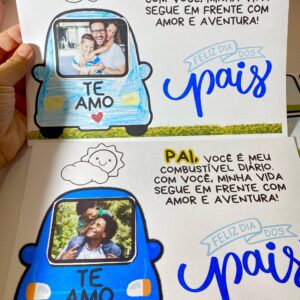 COM VOCÊ, MINHA VIDA
SEGUE EM FRENTE COM
AMOR E AVENTURA!
TE
AMO
FELIZ DIA
DOS
pais
PAI, VOCÊ É MEU
COMBUSTÍVEL DIÁRIO.
COM VOCÊ, MINHA VIDA
SEGUE EM FRENTE COM
AMOR E AVENTURA!
TE
AMO
FELIZ DIA
DOS
pais